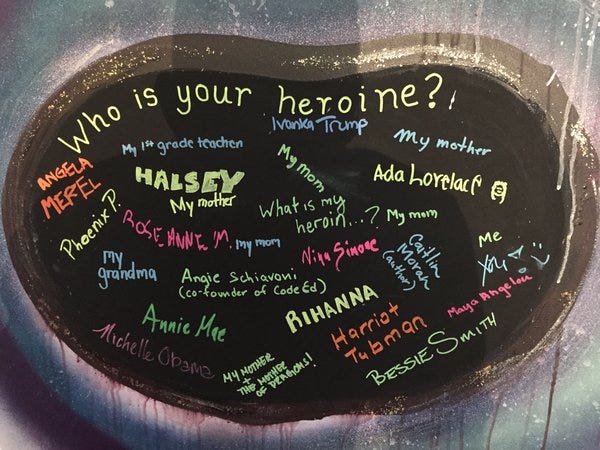 Who is your heroine?
Ivanka Trump
My 1st grade teacher
My mother
ANGELA
MEREL
HALSEY
My mom
Ada Lovelace
My mother
Phoenix P.
What is my
heroin...?
My mom
ROSE ANNE 'M.
my mom
Nina Simone
Caitlin
Moran
(author)
Me
You
my
grandma
Angie Schiavoni
(co-founder of CodeEd)
Maya Angelou
RIHANNA
Annie Mae
Harriet
Tubman
BESSIE SMITH
Michelle Obama
MY MOTHER
+
THE MOTHER
OF DRAGONS!